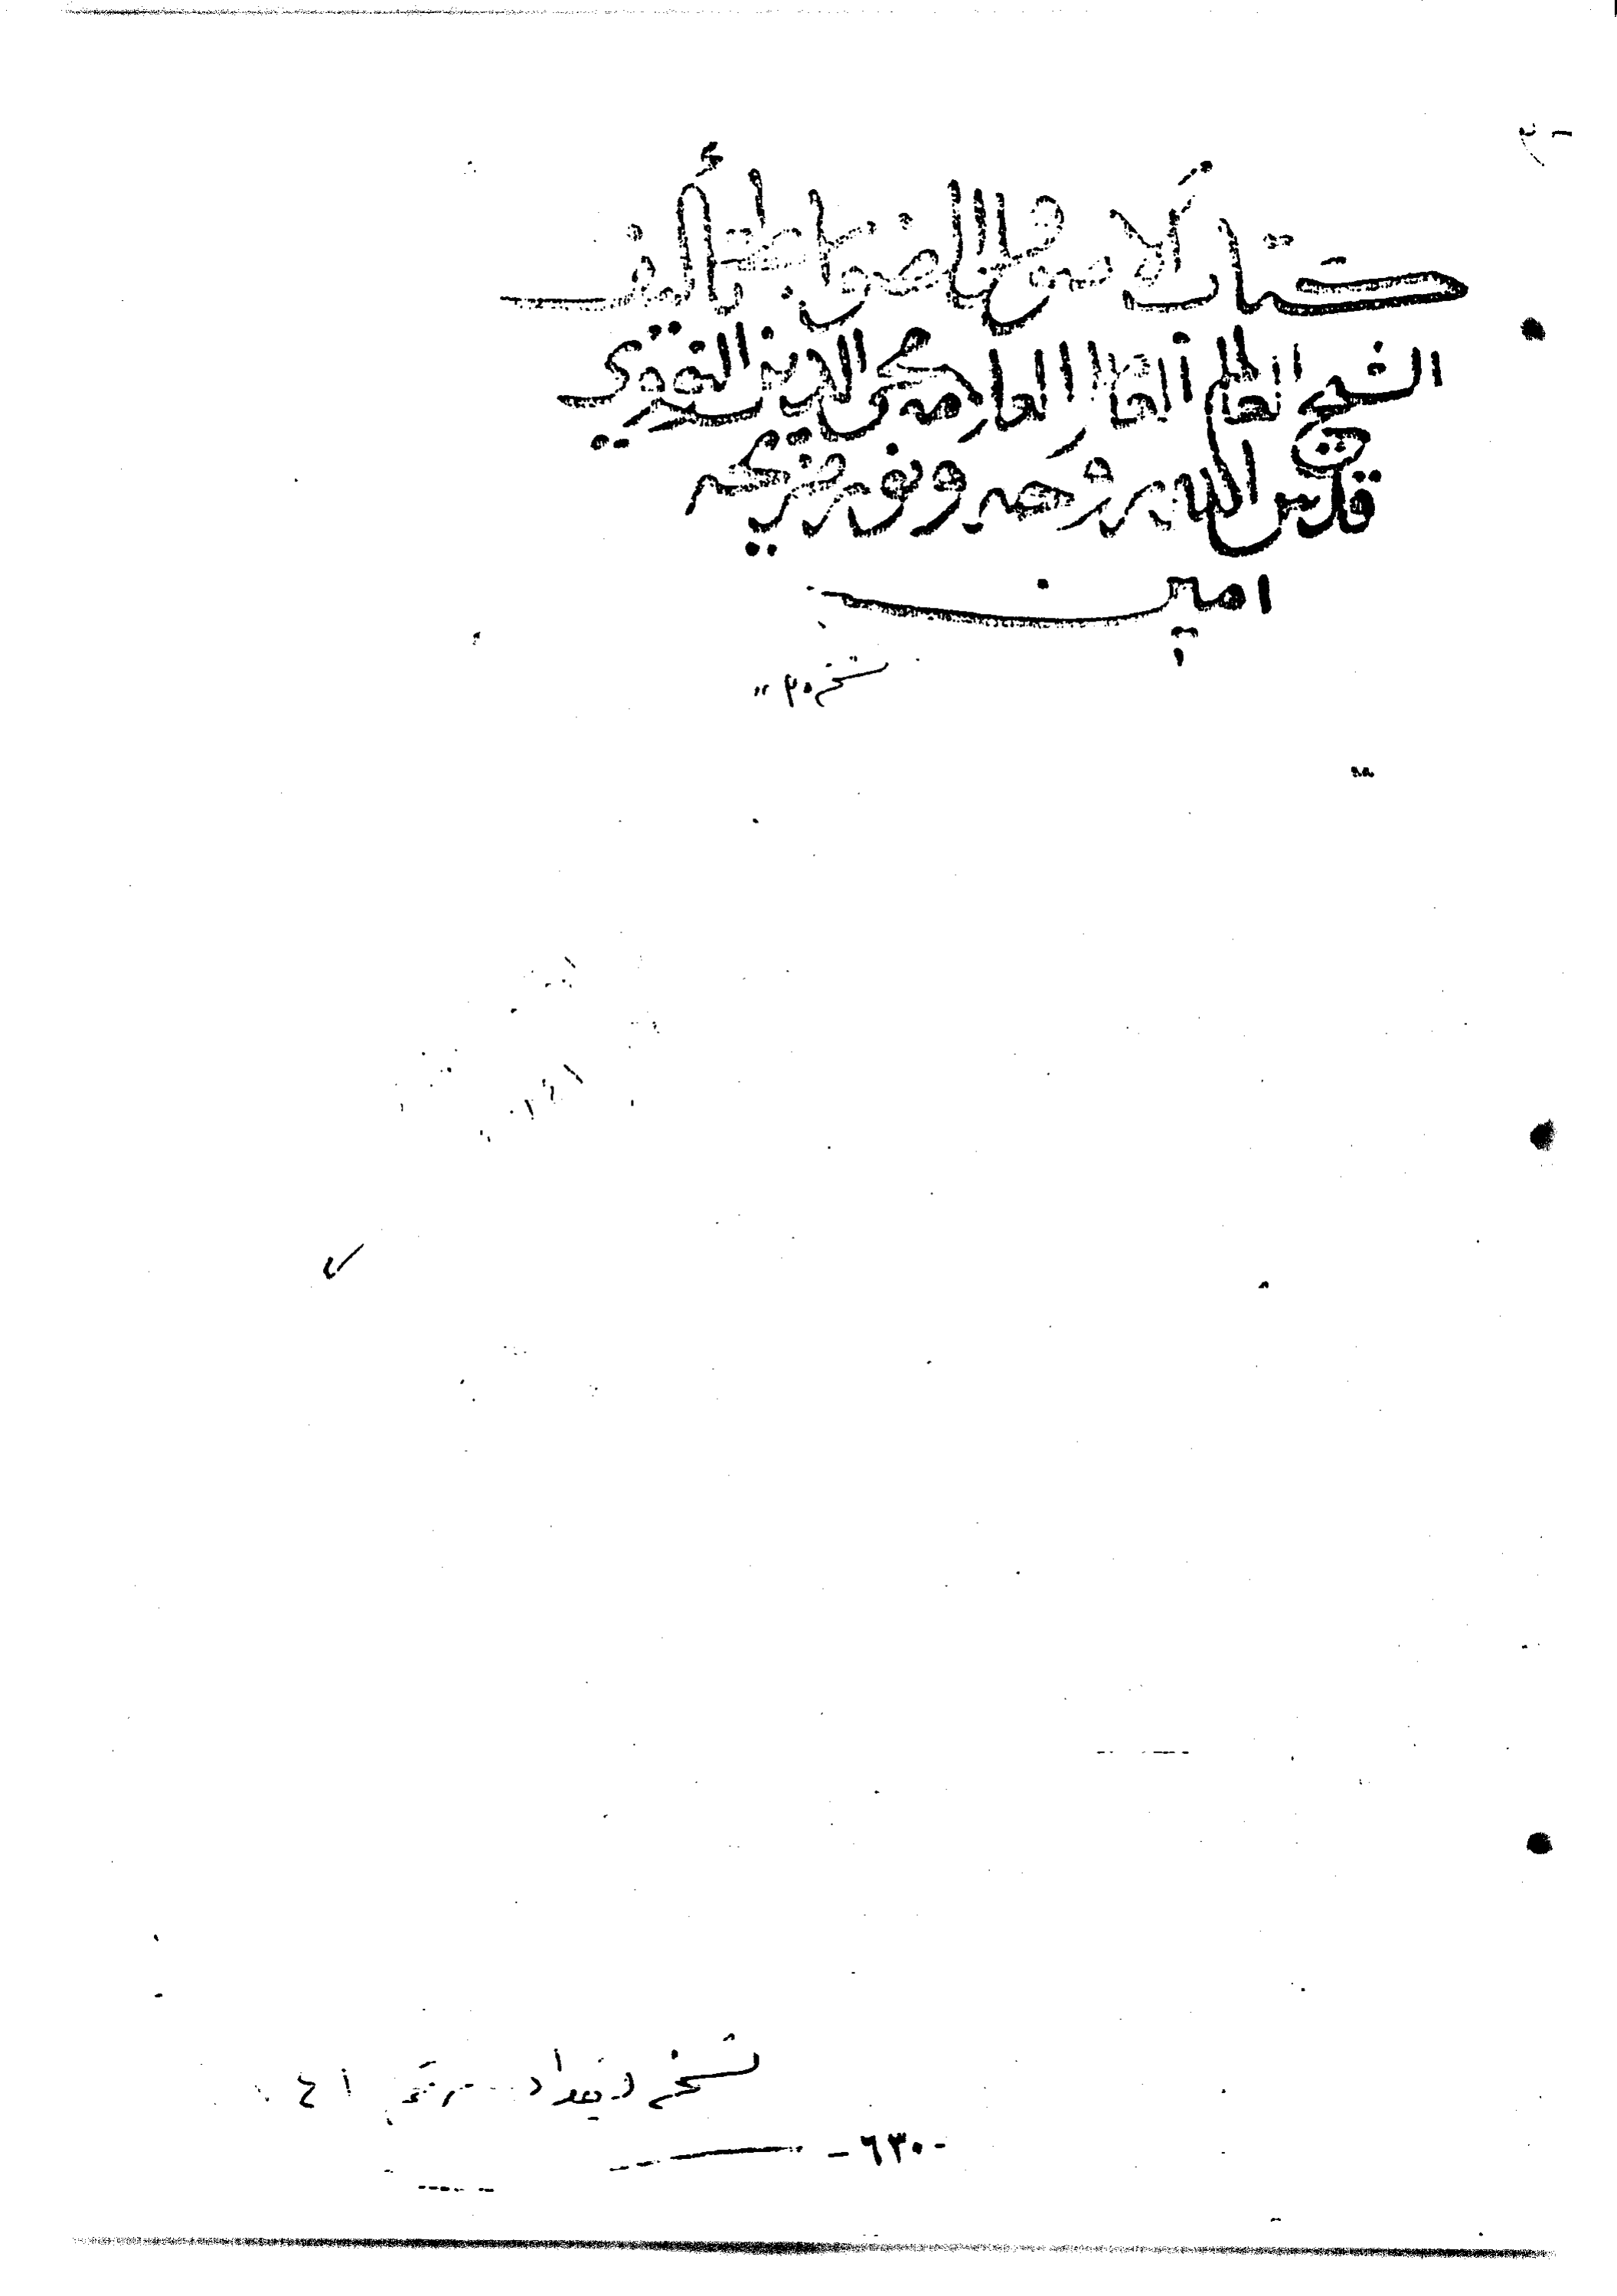 كتاب الاصول الضوابط تأليف
الشيخ العالم العلامة محي الدين النووي
قدس الله روحه ونور ضريحه
امين
نسخه
نسخه بغداد
-٦٣٠-